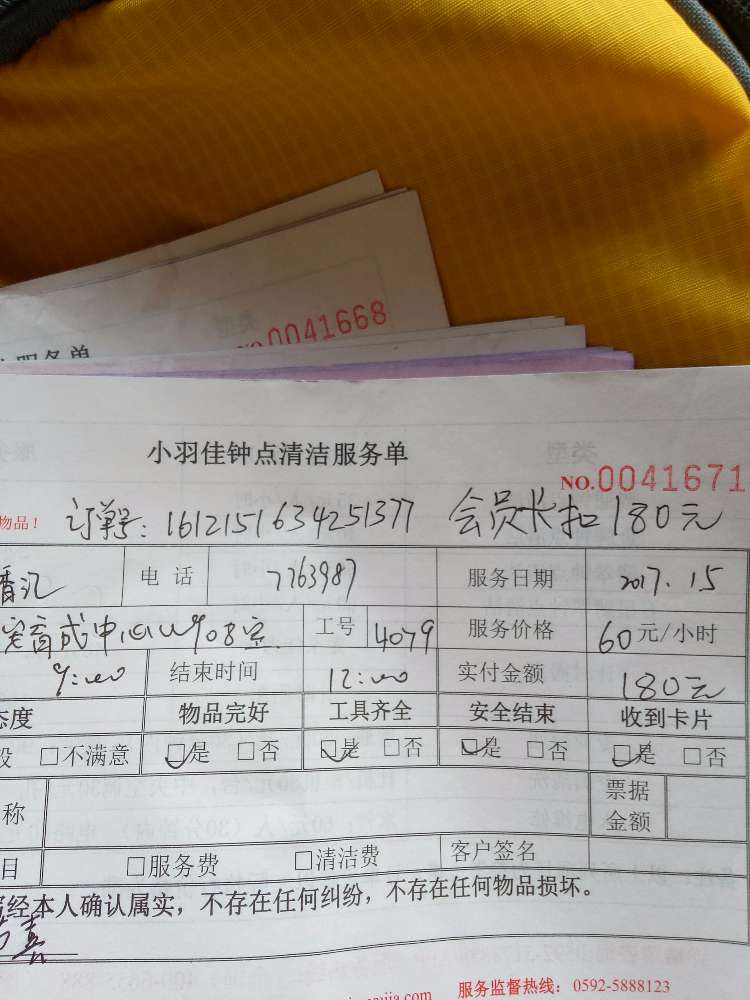 NO.0041668
服务单
小羽佳钟点清洁服务单
NO.0041671
物品！ 订单号：1612151634251377 会员长扣180元
香汇 电 话 7763987 服务日期 2017.15
育成中心W908室 工号 4079 服务价格 60元/小时
9:00 结束时间 12:00 实付金额 180元
态度 物品完好 工具齐全 安全结束 收到卡片
般 □不满意 □是 □否 □是 □否 □是 □否 □是 □否
称 票据金额
目 □服务费 □清洁费 客户签名
经本人确认属实，不存在任何纠纷，不存在任何物品损坏。
服务监督热线：0592-5888123